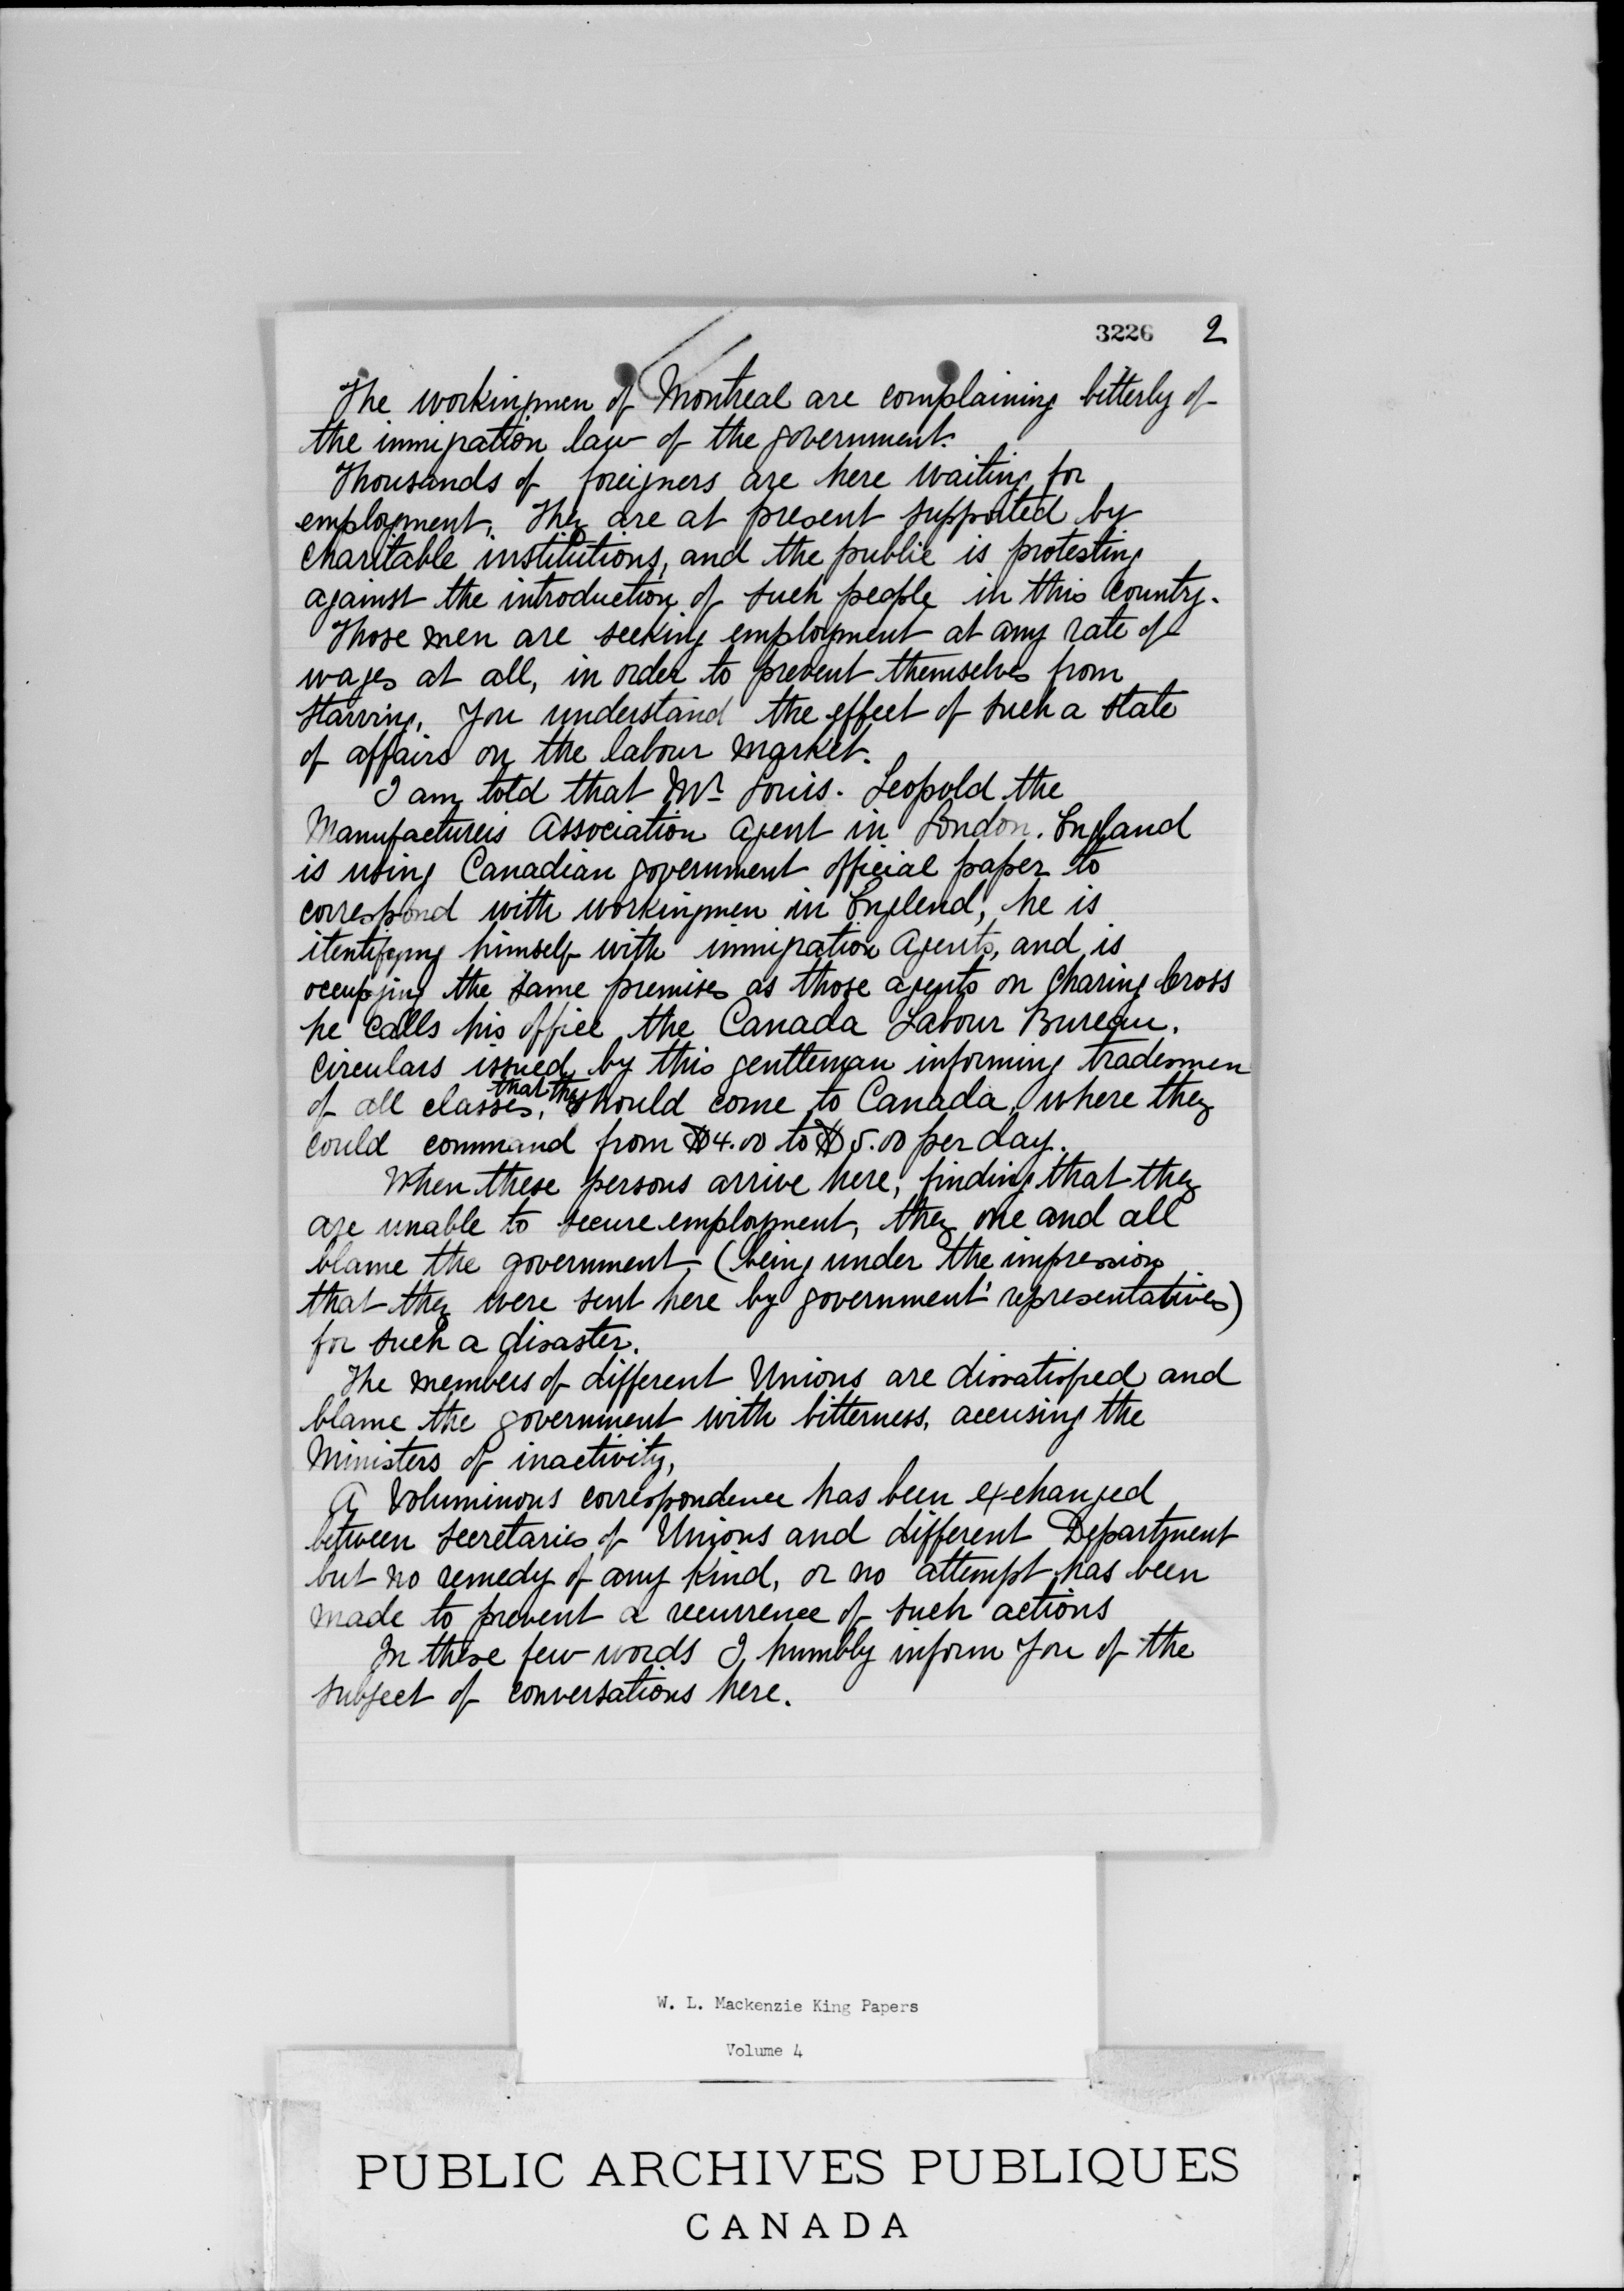 3226 2
The workingmen of Montreal are complaining bitterly of
the immigration law of the government.
Thousands of foreigners are here waiting for
employment. They are at present supported by
charitable institutions, and the public is protesting
against the introduction of such people in this Country.
Those men are seeking employment at any rate of
wages at all, in order to prevent themselves from
starving. You understand the effect of such a state
of affairs on the labour market.
I am told that Mr. Louis. Leopold the
Manufacturers Association Agent in London. England
is using Canadian government official paper to
correspond with workingmen in Englend, he is
itentifying himself with immigration Agents, and is
occupying the same premises as those agents on Charing Cross
he calls his office the Canada Labour Bureau.
Circulars issued by this gentleman informing tradesmen
of all classes, that they should come to Canada, where they
could command from $4.00 to $5.00 per day.
When these persons arrive here, finding that they
are unable to secure employment, they one and all
blame the government (being under the impression
that they were sent here by government' representatives)
for such a disaster.
The members of different Unions are dissatisfied and
blame the government with bitterness, accusing the
Ministers of inactivity,
A Voluminous correspondence has been exchanged
between secretaries of Unions and different Department
but no remedy of any kind, or no attempt has been
made to prevent a recurrence of such actions
In these few words I humbly inform You of the
subject of conversations here.
W. L. Mackenzie King Papers
Volume 4
PUBLIC ARCHIVES PUBLIQUES
CANADA